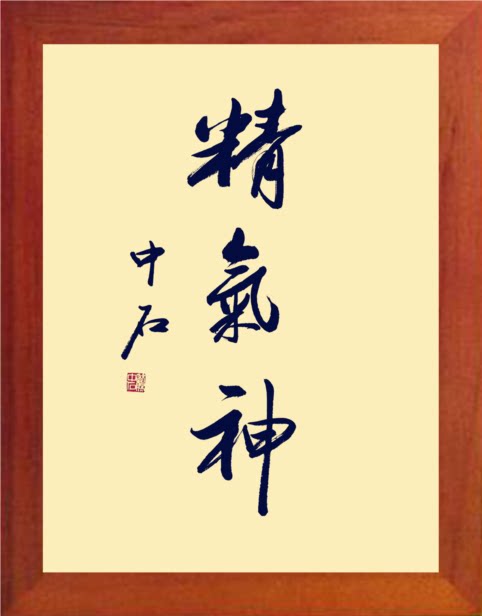 精氣神
中石